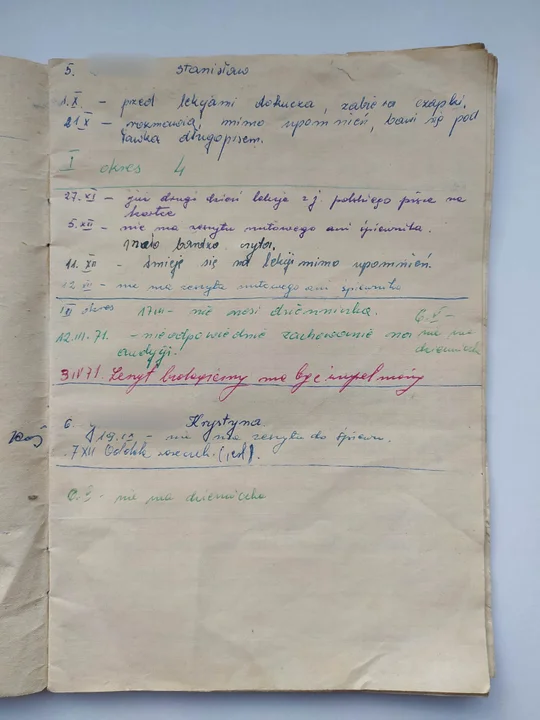 5. Stanisław
1.X. – przed lekcjami dokucza, zabiera czapki.
21.X – rozmawia, mimo upomnień, bawi się pod
ławką długopisem.
I okres 4
27.XI – już drugi dzień lekcje z j. polskiego pisze na
kartce
5.XII – nie ma zeszytu nutowego ani śpiewnika.
Mało bardzo czyta.
11.XII – śmieje się na lekcji mimo upomnień.
12.III – nie ma zeszytu nutowego ani śpiewnika
III okres 17III – nie nosi dzienniczka.
6.V – nie ma
dzienniczka
12.III.71. – nieodpowiednie zachowanie na
audycji.
3 IV 71 Zeszyt biologiczny ma być uzupełniony
6. Krystyna
19.IX – nie ma zeszytu do śpiewu.
7 XII
6.V – nie ma dzienniczka